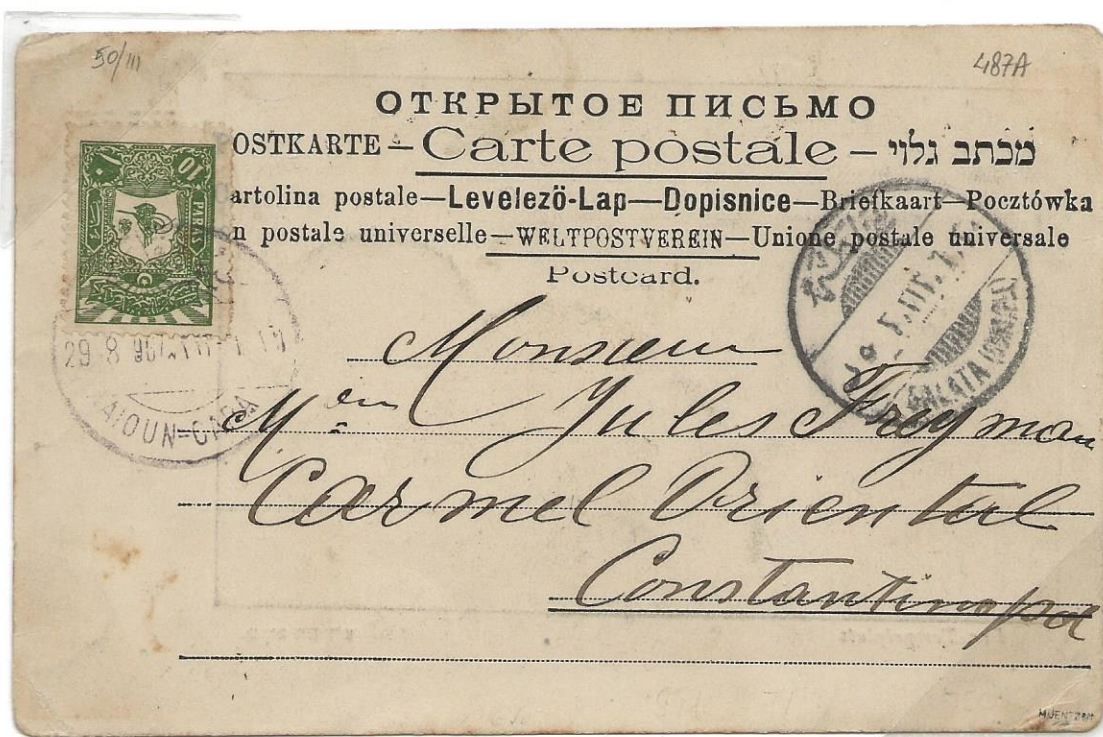 50/III
487A
ОТКРЫТОЕ ПИСЬМО
OSTKARTE – Carte postale – מכתב גלוי
artolina postale—Levelezö-Lap—Dopisnice—Briefkaart—Pocztówka
n postale universelle—WELTPOSTVEREIN—Unione postale universale
Postcard.
10
PARA
29 8
AIOUN=CARA
GALATA
Monsieur
Jules Freyman
Carmel Oriental
Constantinople
MUENTZ